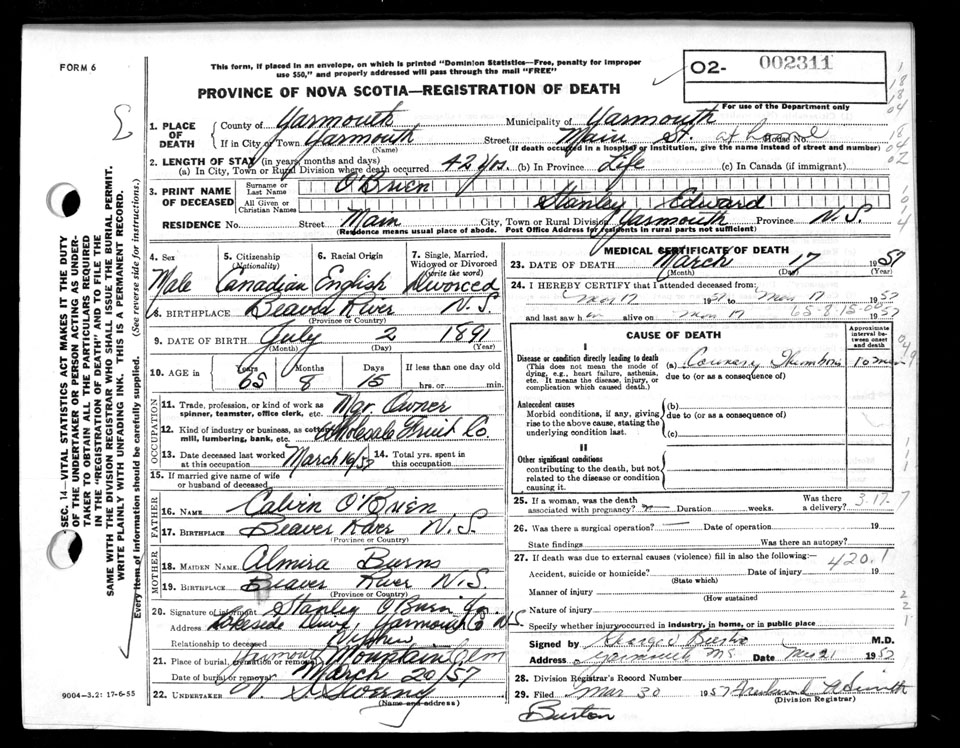 FORM 6
This form, if placed in an envelope, on which is printed "Dominion Statistics—Free, penalty for improper
use $50," and properly addressed will pass through the mail "FREE"
O2- 002311
For use of the Department only
PROVINCE OF NOVA SCOTIA—REGISTRATION OF DEATH
1. PLACE OF DEATH
County of Yarmouth Municipality of Yarmouth
If in City or Town Yarmouth Street Main St. House No.
(Name) (If death occurred in a hospital or institution, give the name instead of street and number)
2. LENGTH OF STAY (in years, months and days)
(a) In City, Town or Rural Division where death occurred 42 yrs. (b) In Province Life (c) In Canada (if immigrant)
3. PRINT NAME OF DECEASED
Surname or Last Name O'Brien
All Given or Christian Names Stanley Edward
RESIDENCE No. Street Main City, Town or Rural Division Yarmouth Province N.S.
(Residence means usual place of abode. Post Office Address for residents in rural parts not sufficient)
4. Sex 5. Citizenship (Nationality) 6. Racial Origin 7. Single, Married, Widowed or Divorced (write the word)
Male Canadian English Divorced
8. BIRTHPLACE Beaver River N.S.
(Province or Country)
9. DATE OF BIRTH July 2 1891
(Month) (Day) (Year)
10. AGE in Years Months Days If less than one day old
65 8 15 hrs. or min.
OCCUPATION
11. Trade, profession, or kind of work as spinner, teamster, office clerk, etc. Mgr. Owner
12. Kind of industry or business, as cotton mill, lumbering, bank, etc. Wholesale Fruit Co.
13. Date deceased last worked at this occupation March 16/57 14. Total yrs. spent in this occupation
15. If married give name of wife or husband of deceased
FATHER
16. NAME Calvin O'Brien
17. BIRTHPLACE Beaver River N.S.
(Province or Country)
MOTHER
18. MAIDEN NAME Almira Burns
19. BIRTHPLACE Beaver River N.S.
(Province or Country)
20. Signature of informant Stanley O'Brien Jr.
Address Lakeside Drive, Yarmouth N.S.
Relationship to deceased Nephew
21. Place of burial, cremation or removal Mountain Cem
Date of burial or removal March 20/57
22. UNDERTAKER Sweeny
(Name and address)
9004—3.2: 17-6-55
MEDICAL CERTIFICATE OF DEATH
23. DATE OF DEATH March 17 1957
(Month) (Day) (Year)
24. I HEREBY CERTIFY that I attended deceased from
Mar 17 1957 to Mar 17 1957
and last saw h im alive on Mar 17 1957
65-8-15-00
CAUSE OF DEATH
Approximate interval between onset and death
I
Disease or condition directly leading to death (a) Coronary Thrombosis 10 min
(This does not mean the mode of dying, e.g., heart failure, asthenia, etc. It means the disease, injury, or complication which caused death.)
due to (or as a consequence of)
Antecedent causes (b)
Morbid conditions, if any, giving rise to the above cause, stating the underlying condition last.
due to (or as a consequence of)
(c)
II
Other significant conditions
contributing to the death, but not related to the disease or condition causing it.
25. If a woman, was the death associated with pregnancy? Duration weeks. Was there a delivery?
3-17-7
26. Was there a surgical operation? Date of operation 19
State findings Was there an autopsy?
27. If death was due to external causes (violence) fill in also the following:
420.1
Accident, suicide or homicide? Date of injury 19
(State which)
Manner of injury
(How sustained)
Nature of injury
Specify whether injury occurred in industry, in home, or in public place
Signed by M.D.
Address Yarmouth N.S. Date Mar 21 1957
28. Division Registrar's Record Number
29. Filed Mar 30 1957
(Division Registrar)
Burton
SEC. 14—VITAL STATISTICS ACT MAKES IT THE DUTY
OF THE UNDERTAKER OR PERSON ACTING AS UNDER-
TAKER TO OBTAIN ALL THE PARTICULARS REQUIRED
IN THE "REGISTRATION OF DEATH" AND TO FILE THE
SAME WITH THE DIVISION REGISTRAR WHO SHALL ISSUE THE BURIAL PERMIT.
WRITE PLAINLY WITH UNFADING INK. THIS IS A PERMANENT RECORD.
Every item of information should be carefully supplied. (See reverse side for instructions.)